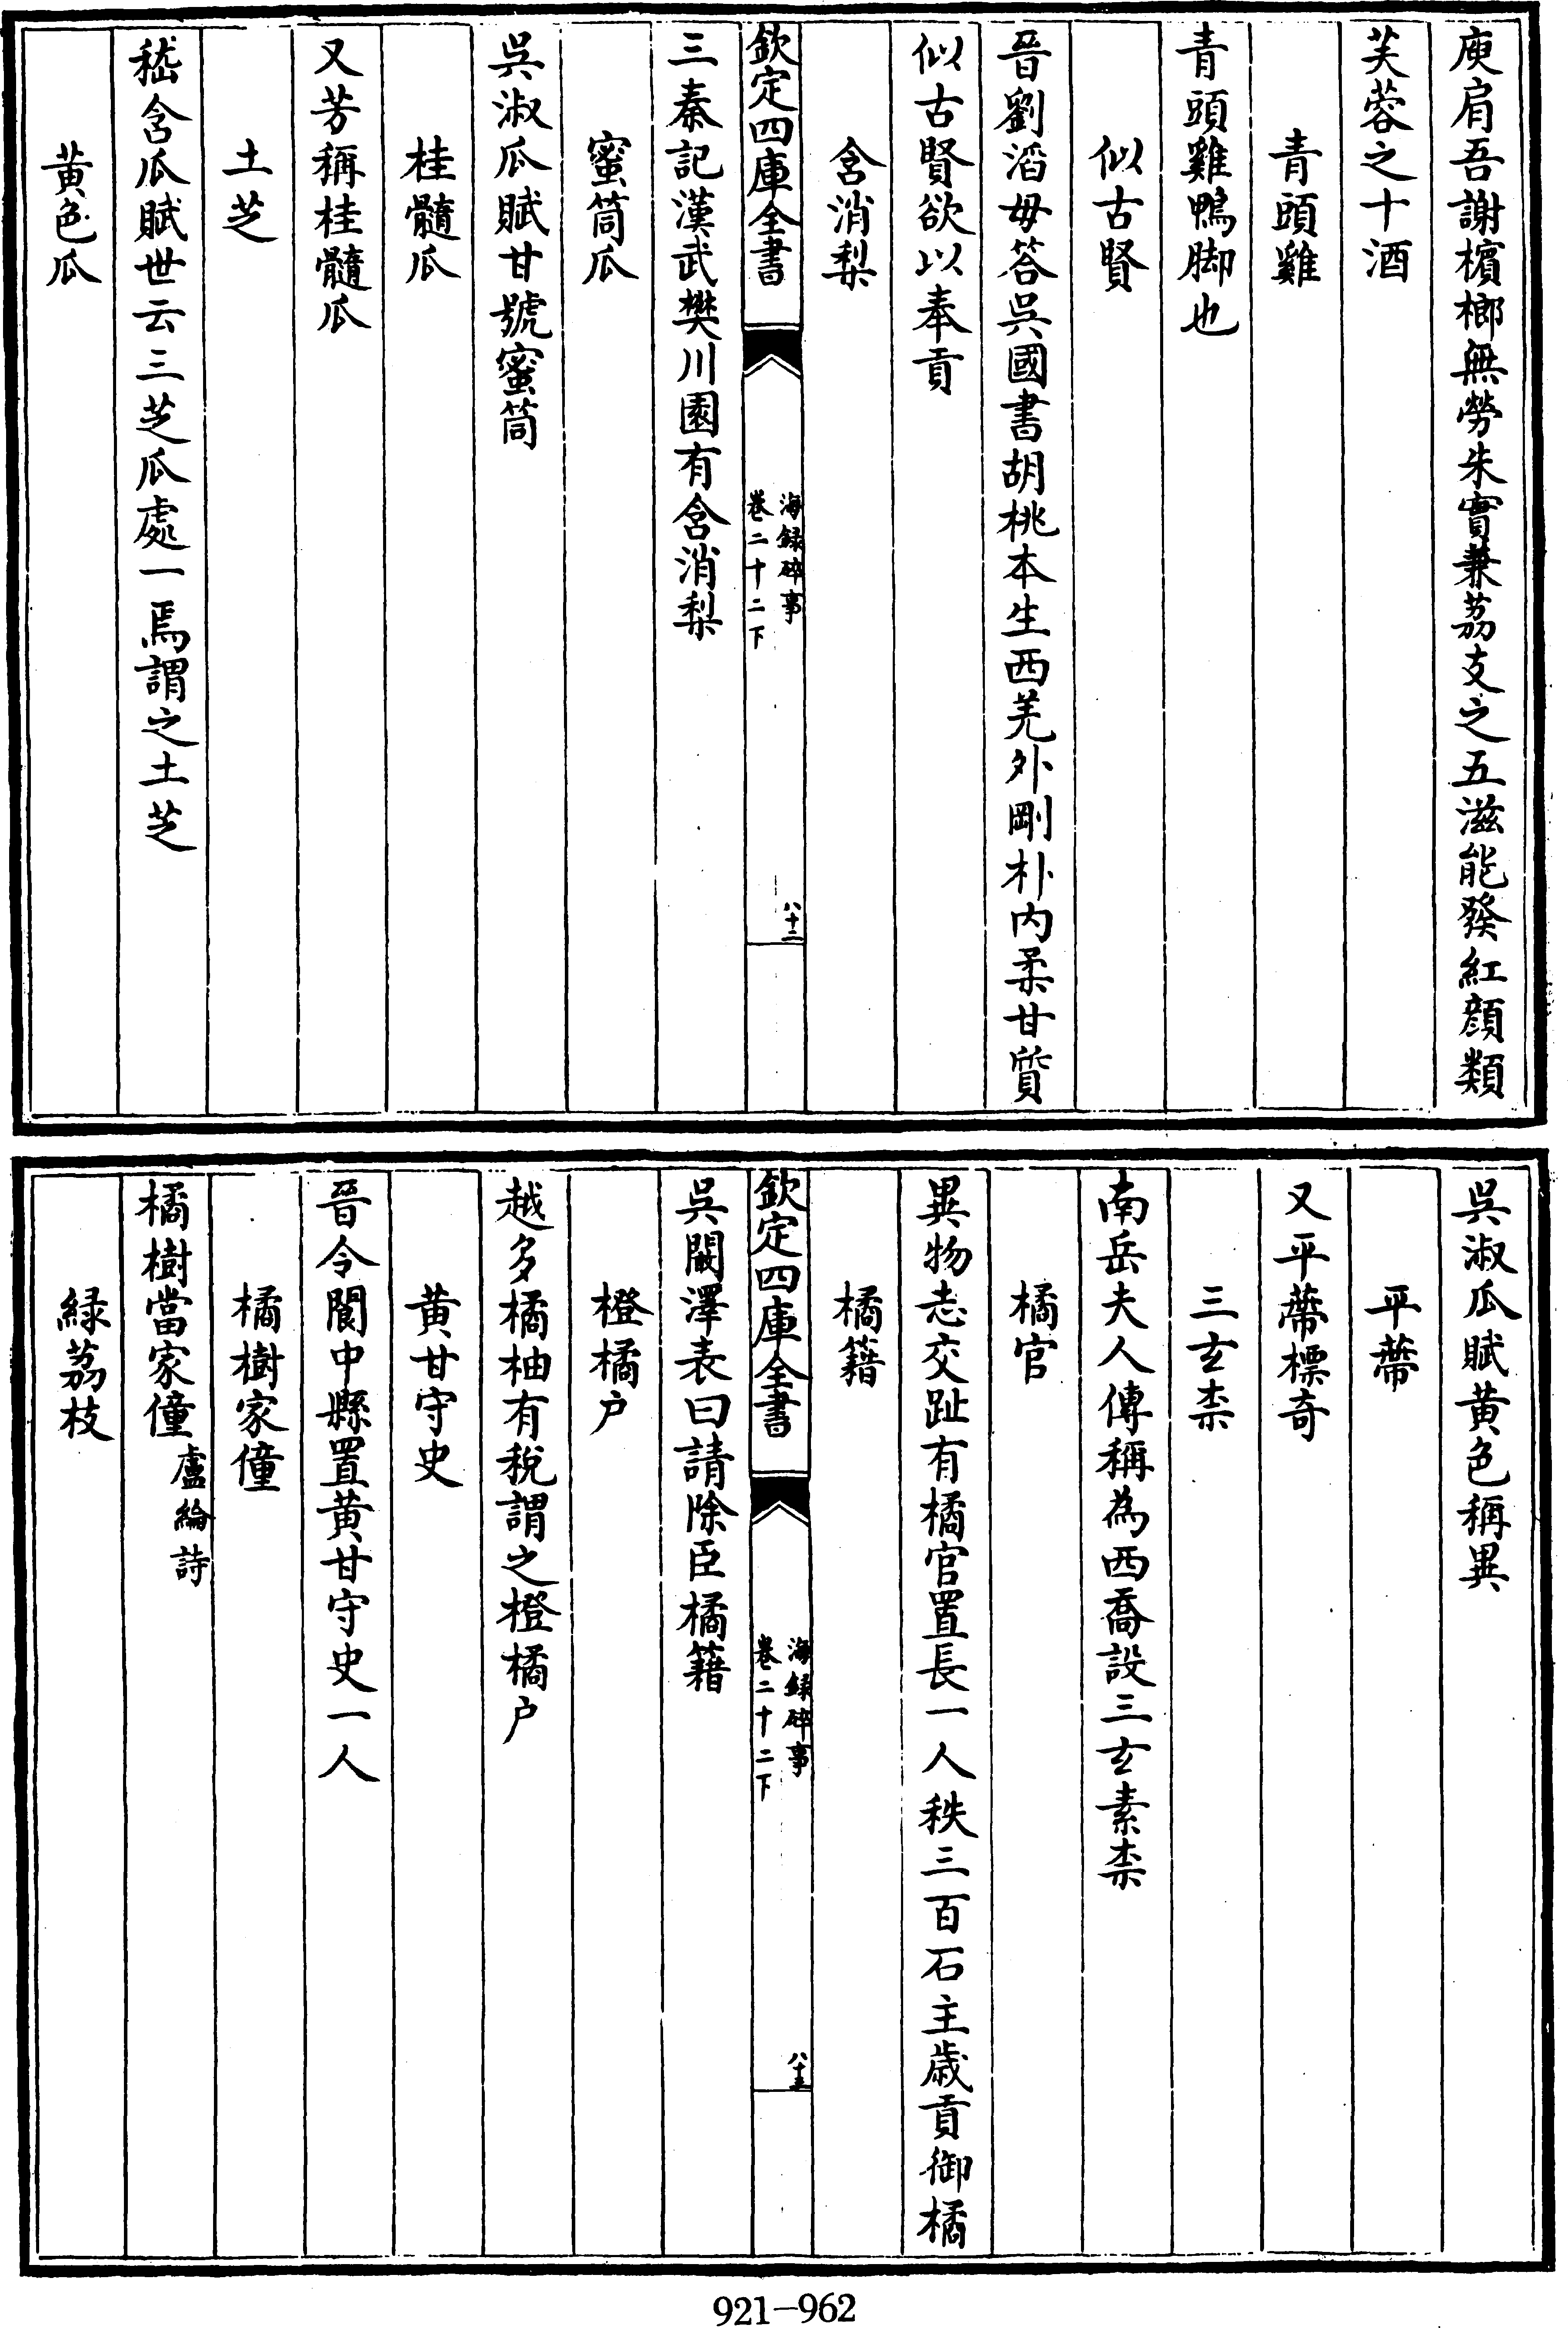 庾肩吾謝檳榔無勞朱實兼荔支之五滋能發紅顔類
芙蓉之十酒
青頭雞
青頭雞鴨脚也
似古賢
晉劉滔母答吳國書胡桃本生西羌外剛朴内柔甘質
似古賢欲以奉貢
含消梨
欽定四庫全書
海録碎事
卷二十二下
八十二
三秦記漢武樊川園有含消梨
蜜筒瓜
吳淑瓜賦甘號蜜筒
桂髓瓜
又芳稱桂髓瓜
土芝
嵇含瓜賦世云三芝瓜處一焉謂之土芝
黄色瓜
吳淑瓜賦黄色稱異
平蔕
又平蔕標奇
三玄柰
南岳夫人傳稱為西喬設三玄素柰
橘官
異物志交趾有橘官置長一人秩三百石主歲貢御橘
橘籍
欽定四庫全書
海録碎事
卷二十二下
八十三
吳闞澤表曰請除臣橘籍
橙橘户
越多橘柚有稅謂之橙橘户
黄甘守史
晉令閬中縣置黄甘守史一人
橘樹家僮
橘樹當家僮盧綸詩
緑荔枝
921-962